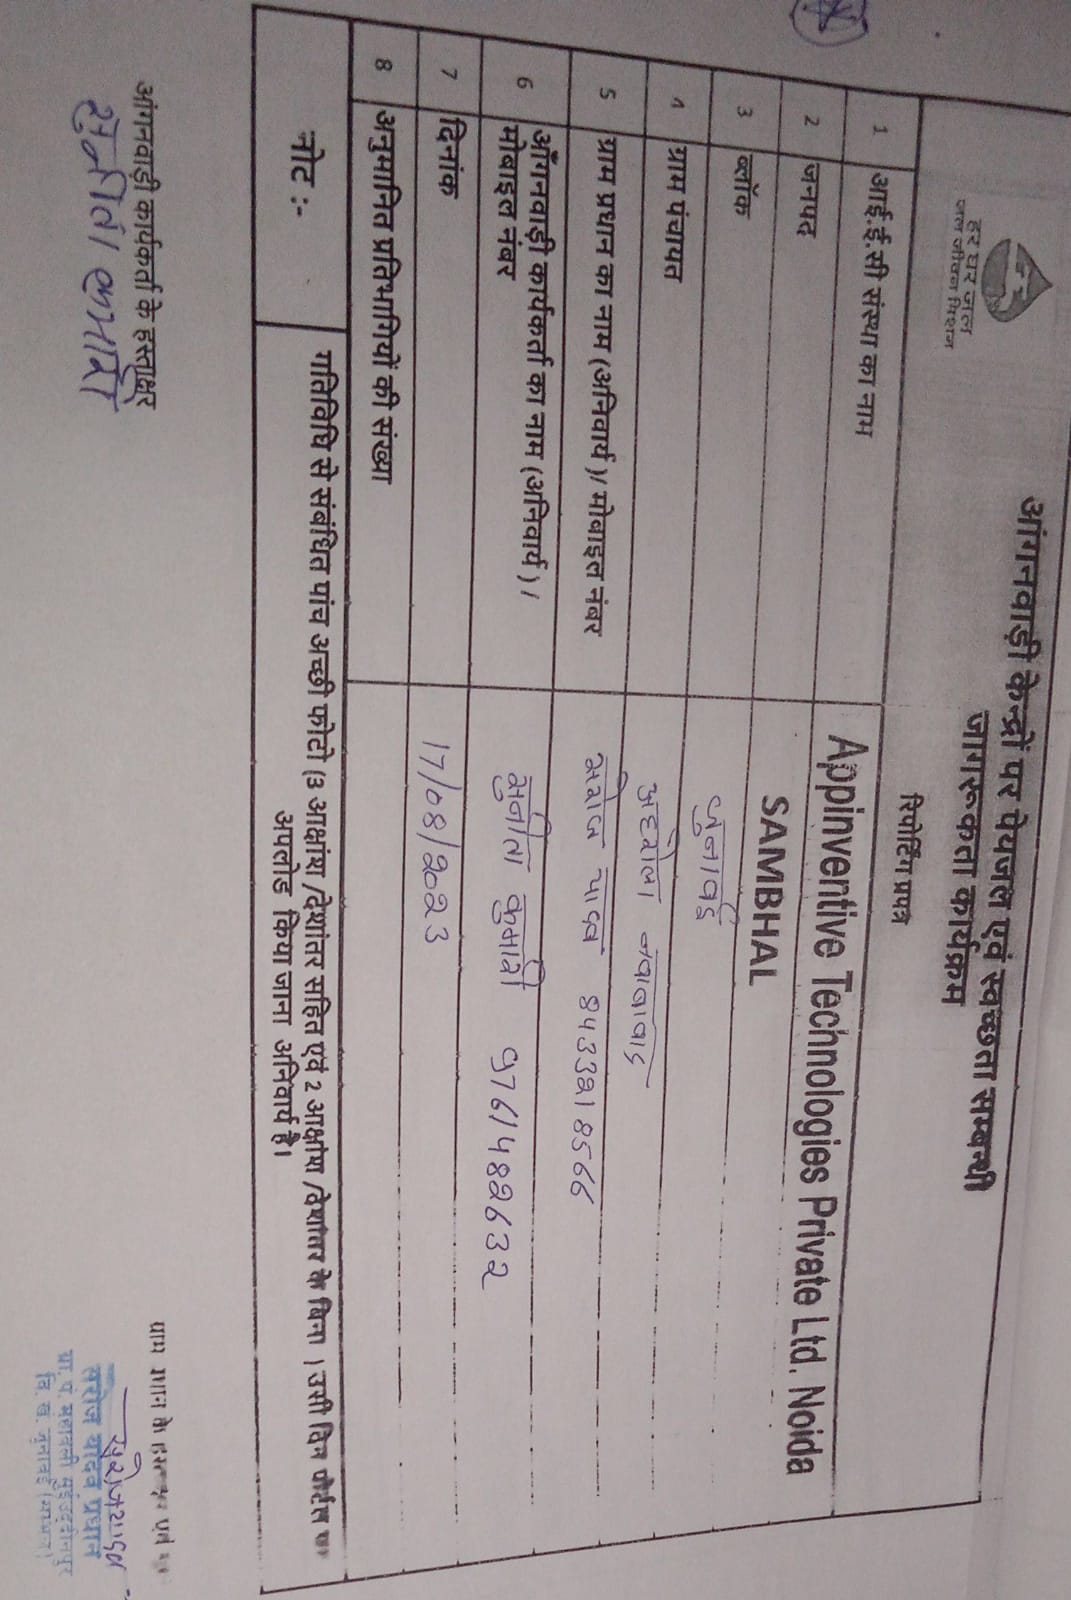 हर घर जल
जल जीवन मिशन
आंगनवाड़ी केन्द्रों पर पेयजल एवं स्वच्छता सम्बन्धी
जागरूकता कार्यक्रम
रिपोर्टिंग प्रपत्र
1 आई.ई.सी संस्था का नाम Appinventive Technologies Private Ltd. Noida
2 जनपद SAMBHAL
3 ब्लॉक जुनावई
4 ग्राम पंचायत
5 ग्राम प्रधान का नाम (अनिवार्य)/ मोबाइल नंबर सरोज यादव 8433218566
6 आँगनवाड़ी कार्यकर्ता का नाम (अनिवार्य) / मोबाइल नंबर सुनीता कुमारी 9761482632
7 दिनांक 17/08/2023
8 अनुमानित प्रतिभागियों की संख्या
नोट :- गतिविधि से संबंधित पांच अच्छी फोटो (3 आक्षांश /देशांतर सहित एवं 2 आक्षांश /देशांतर के बिना ) उसी दिन पोर्टल पर
अपलोड किया जाना अनिवार्य है।
आंगनवाड़ी कार्यकर्ता के हस्ताक्षर
सुनीता कुमारी
ग्राम प्रधान के हस्ताक्षर एवं
सरोज यादव
सरोज यादव प्रधान
ग्रा. पं.
वि. ख. जुनावई